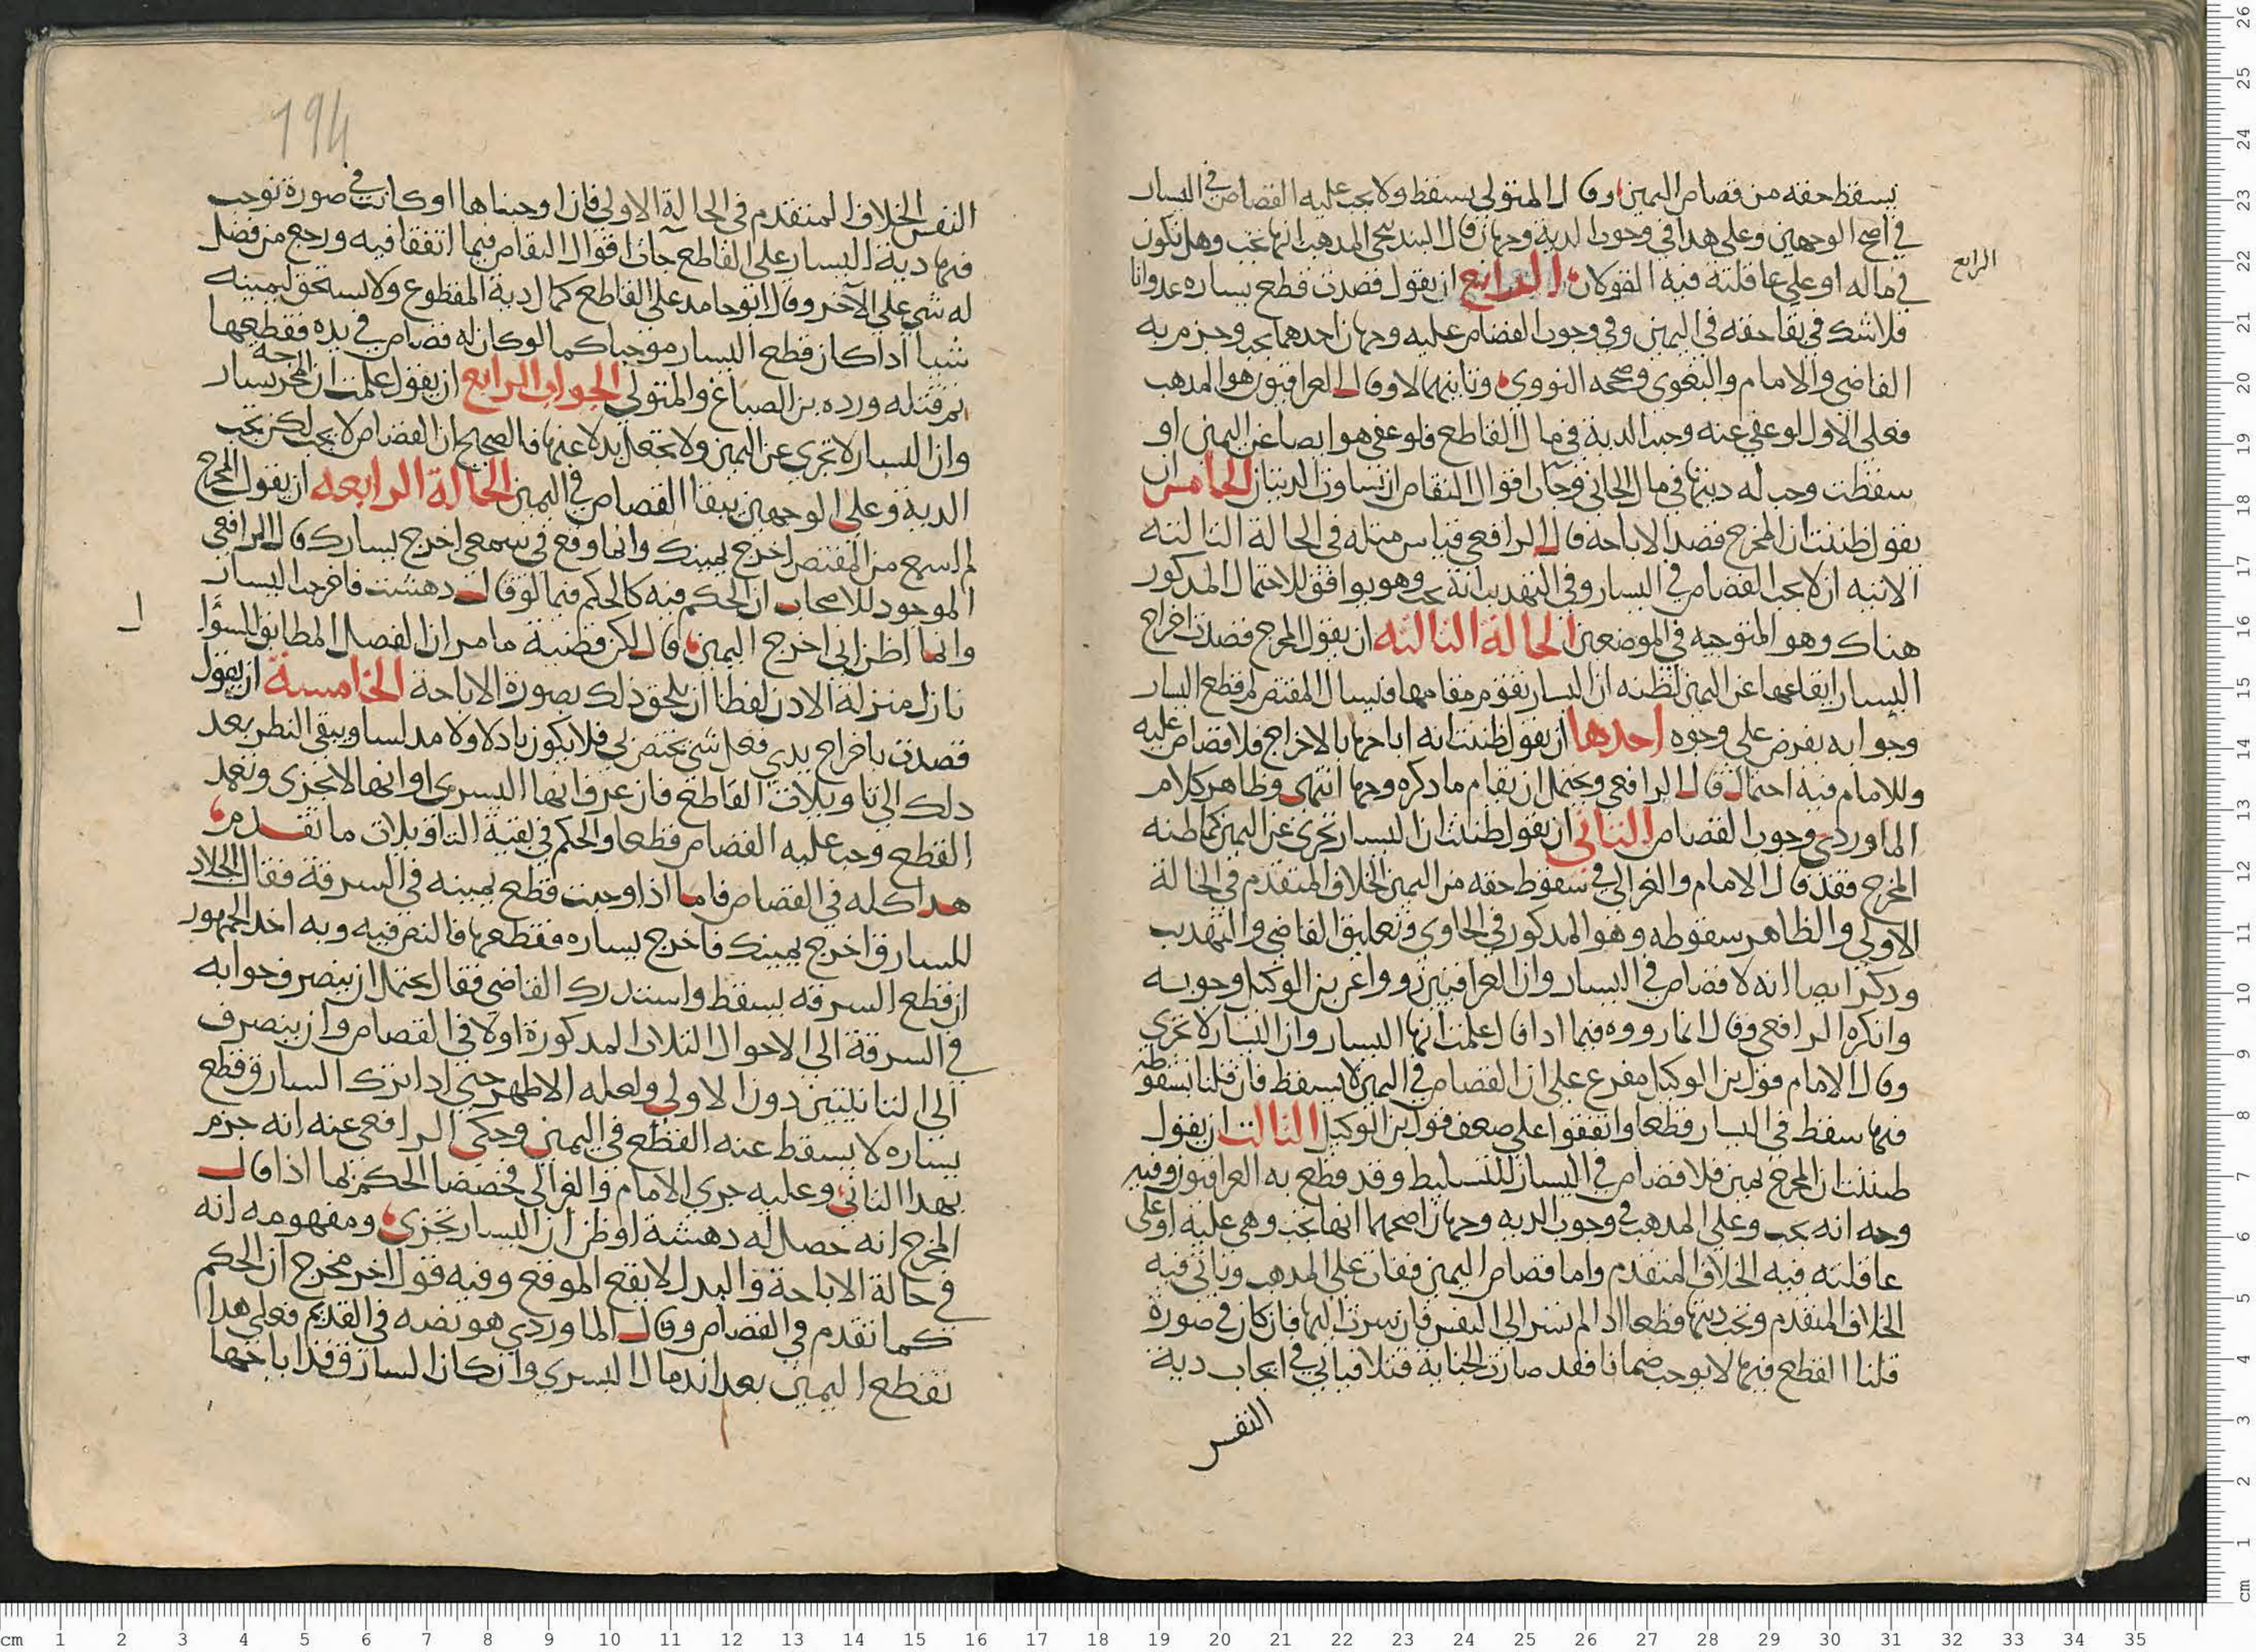 يسقط حقه من قصاص اليمين وقال المتولي يسقط ولا يجب عليه القصاص في اليسار
في اصح الوجهين وعلى هذا في وجوب الدية وجهان قال البندنيجي المذهب انها تجب وهل تكون
في ماله او على عاقلته فيه القولان الرابع ان يقول قصدت قطع يساره عدوانا
الرابع
فلا شك في بقا حقه في اليمين وفي وجوب القصاص عليه وجهان احدهما يجب وجزم به
القاضي والامام والبغوي وصححه النووي وثانيهما لا وقال العراقيون هو المذهب
فعلى الاول لو عفي عنه وجبت الدية في مال القاطع فلو عفي هو ايضا عن اليمين او
سقطت وجب له ديتها في مال الجاني وجات اقوال التقاص ان تساوت الديتان الخامس ان
يقول ظننت ان المخرج قصد الاباحة قال الرافعي قياس مثله في الحالة الثالثة
الاتيه ان لا يجب القصاص في اليسار وفي التهذيب انه يجب وهو يوافق للاحتمال المذكور
هناك وهو المتوجه في الموضعين الحالة الثالثه ان يقول المخرج قصدت اخراج
اليسار ايقاعها عن اليمين لظنه ان اليسار تقوم مقامها فيسال المقتص لم قطع اليسار
وجوابه يفرض على وجوه احدها ان يقول ظننت انه اباحها بالاخراج فلا قصاص عليه
وللامام فيه احتمال قال الرافعي ويحتمل ان يقام ما ذكره وجها انتهى وظاهر كلام
الماوردي وجوب القصاص الثاني ان يقول ظننت ان اليسار تجزي عن اليمين كما ظنه
المخرج فقد قال الامام والغزالي في سقوط حقه من اليمين الخلاف المتقدم في الحالة
الاولى والظاهر سقوطه وهو المذكور في الحاوي وتعليق القاضي والتهذيب
وذكر ايضا انه لا قصاص في اليسار وان العراقيين رووا عن بن الوكيل وجوبه
وانكره الرافعي وقال انما رووه فيما اذا قال علمت انها اليسار وان اليسار لا تجزي
وقال الامام قول بن الوكيل مفرع على ان القصاص في اليمين لا يسقط فان قلنا بسقوطه
فيها سقط في اليسار قطعا واتفقوا على ضعف قول بن الوكيل الثالث ان يقول
ظننت ان المخرج يمين فلا قصاص في اليسار للتسليط وقد قطع به العراقيون وفيه
وجه انه يجب وعلى المذهب في وجوب الديه وجهان اصحهما انها تجب وهي عليه او على
عاقلته فيه الخلاف المتقدم واما قصاص اليمين فقات على المذهب وياتي فيه
الخلاف المتقدم وتجب ديتها قطعا اذا لم تسر الى النفس فان سرت اليها فان كان في صورة
قلنا القطع فيها لا يوجب ضمانا فقد صارت الجناية قتلا فياتي في ايجاب دية
النفس
194
النفس الخلاف المتقدم في الحالة الاولى فان اوجبناها او كانت في صورة توجب
فيها دية اليسار على القاطع جات اقوال التقاص فيما اتفقا فيه ورجع من فضل
له شي على الآخر وقال ابو حامد على القاطع كمال دية المقطوع ولا يستحق ليمينه
شيا اذا كان قطع اليسار موجبا كما لو كان له قصاص في يده فقطعها
ثم قتله ورده بن الصباغ والمتولي الجواب الرابع ان يقول علمت ان المخرجة يسار
وان اليسار لا تجزي عن اليمين ولا تجعل بدلا عنها فالصحيح ان القصاص لا يجب لكن تجب
الدية وعلى الوجهين يبقا القصاص في اليمين الحالة الرابعه ان يقول المخرج
لم اسمع من المقتص اخرج يمينك وانما وقع في سمعي اخرج يسارك قال الرافعي
الموجود للاصحاب ان الحكم فيه كالحكم فيما لو قال دهشت فاخرجت اليسار
وانما اظن اني اخرج اليمين قال لكن قضية ما مر ان الفصل المطابق للسؤا
ل
نازل منزلة الاذن لفظا ان يلحق ذلك بصورة الاباحة الخامسة ان يقول
قصدت باخراج يدي فعل شي يختص بي فلا يكون باذلا ولا مدلسا ويبقى النظر بعد
ذلك الى تاويلات القاطع فان عرف انها اليسرى او انها لا تجزي وتعمد
القطع وجب عليه القصاص قطعا والحكم في بقية التاويلات ما تقدم
هذا كله في القصاص فاما اذا وجبت قطع يمينه في السرقة فقال الجلاد
للسارق اخرج يمينك فاخرج يساره فقطعها فالنص فيه وبه اخذ الجمهور
ان قطع السرقه يسقط واستدرك القاضي فقال يحتمل ان ينصرف جوابه
في السرقة الى الاحوال الثلاث المذكورة اولا في القصاص وان ينصرف
الى الثانيتين دون الاولى ولعله الاظهر حتى اذا ترك السارق قطع
يساره لا يسقط عنه القطع في اليمين وحكى الرافعي عنه انه جزم
بهذا الثاني وعليه جرى الامام والغزالي فخصصا الحكم بما اذا قال
المخرج انه حصل له دهشة او ظن ان اليسار تجزي ومفهومه انه
في حالة الاباحة والبدل لا يقع الموقع وفيه قول اخر مخرج ان الحكم
كما تقدم في القصاص وقال الماوردي هو نصه في القديم فعلى هذا
تقطع اليمين بعد اندمال اليسرى وان كان السارق قد اباحها